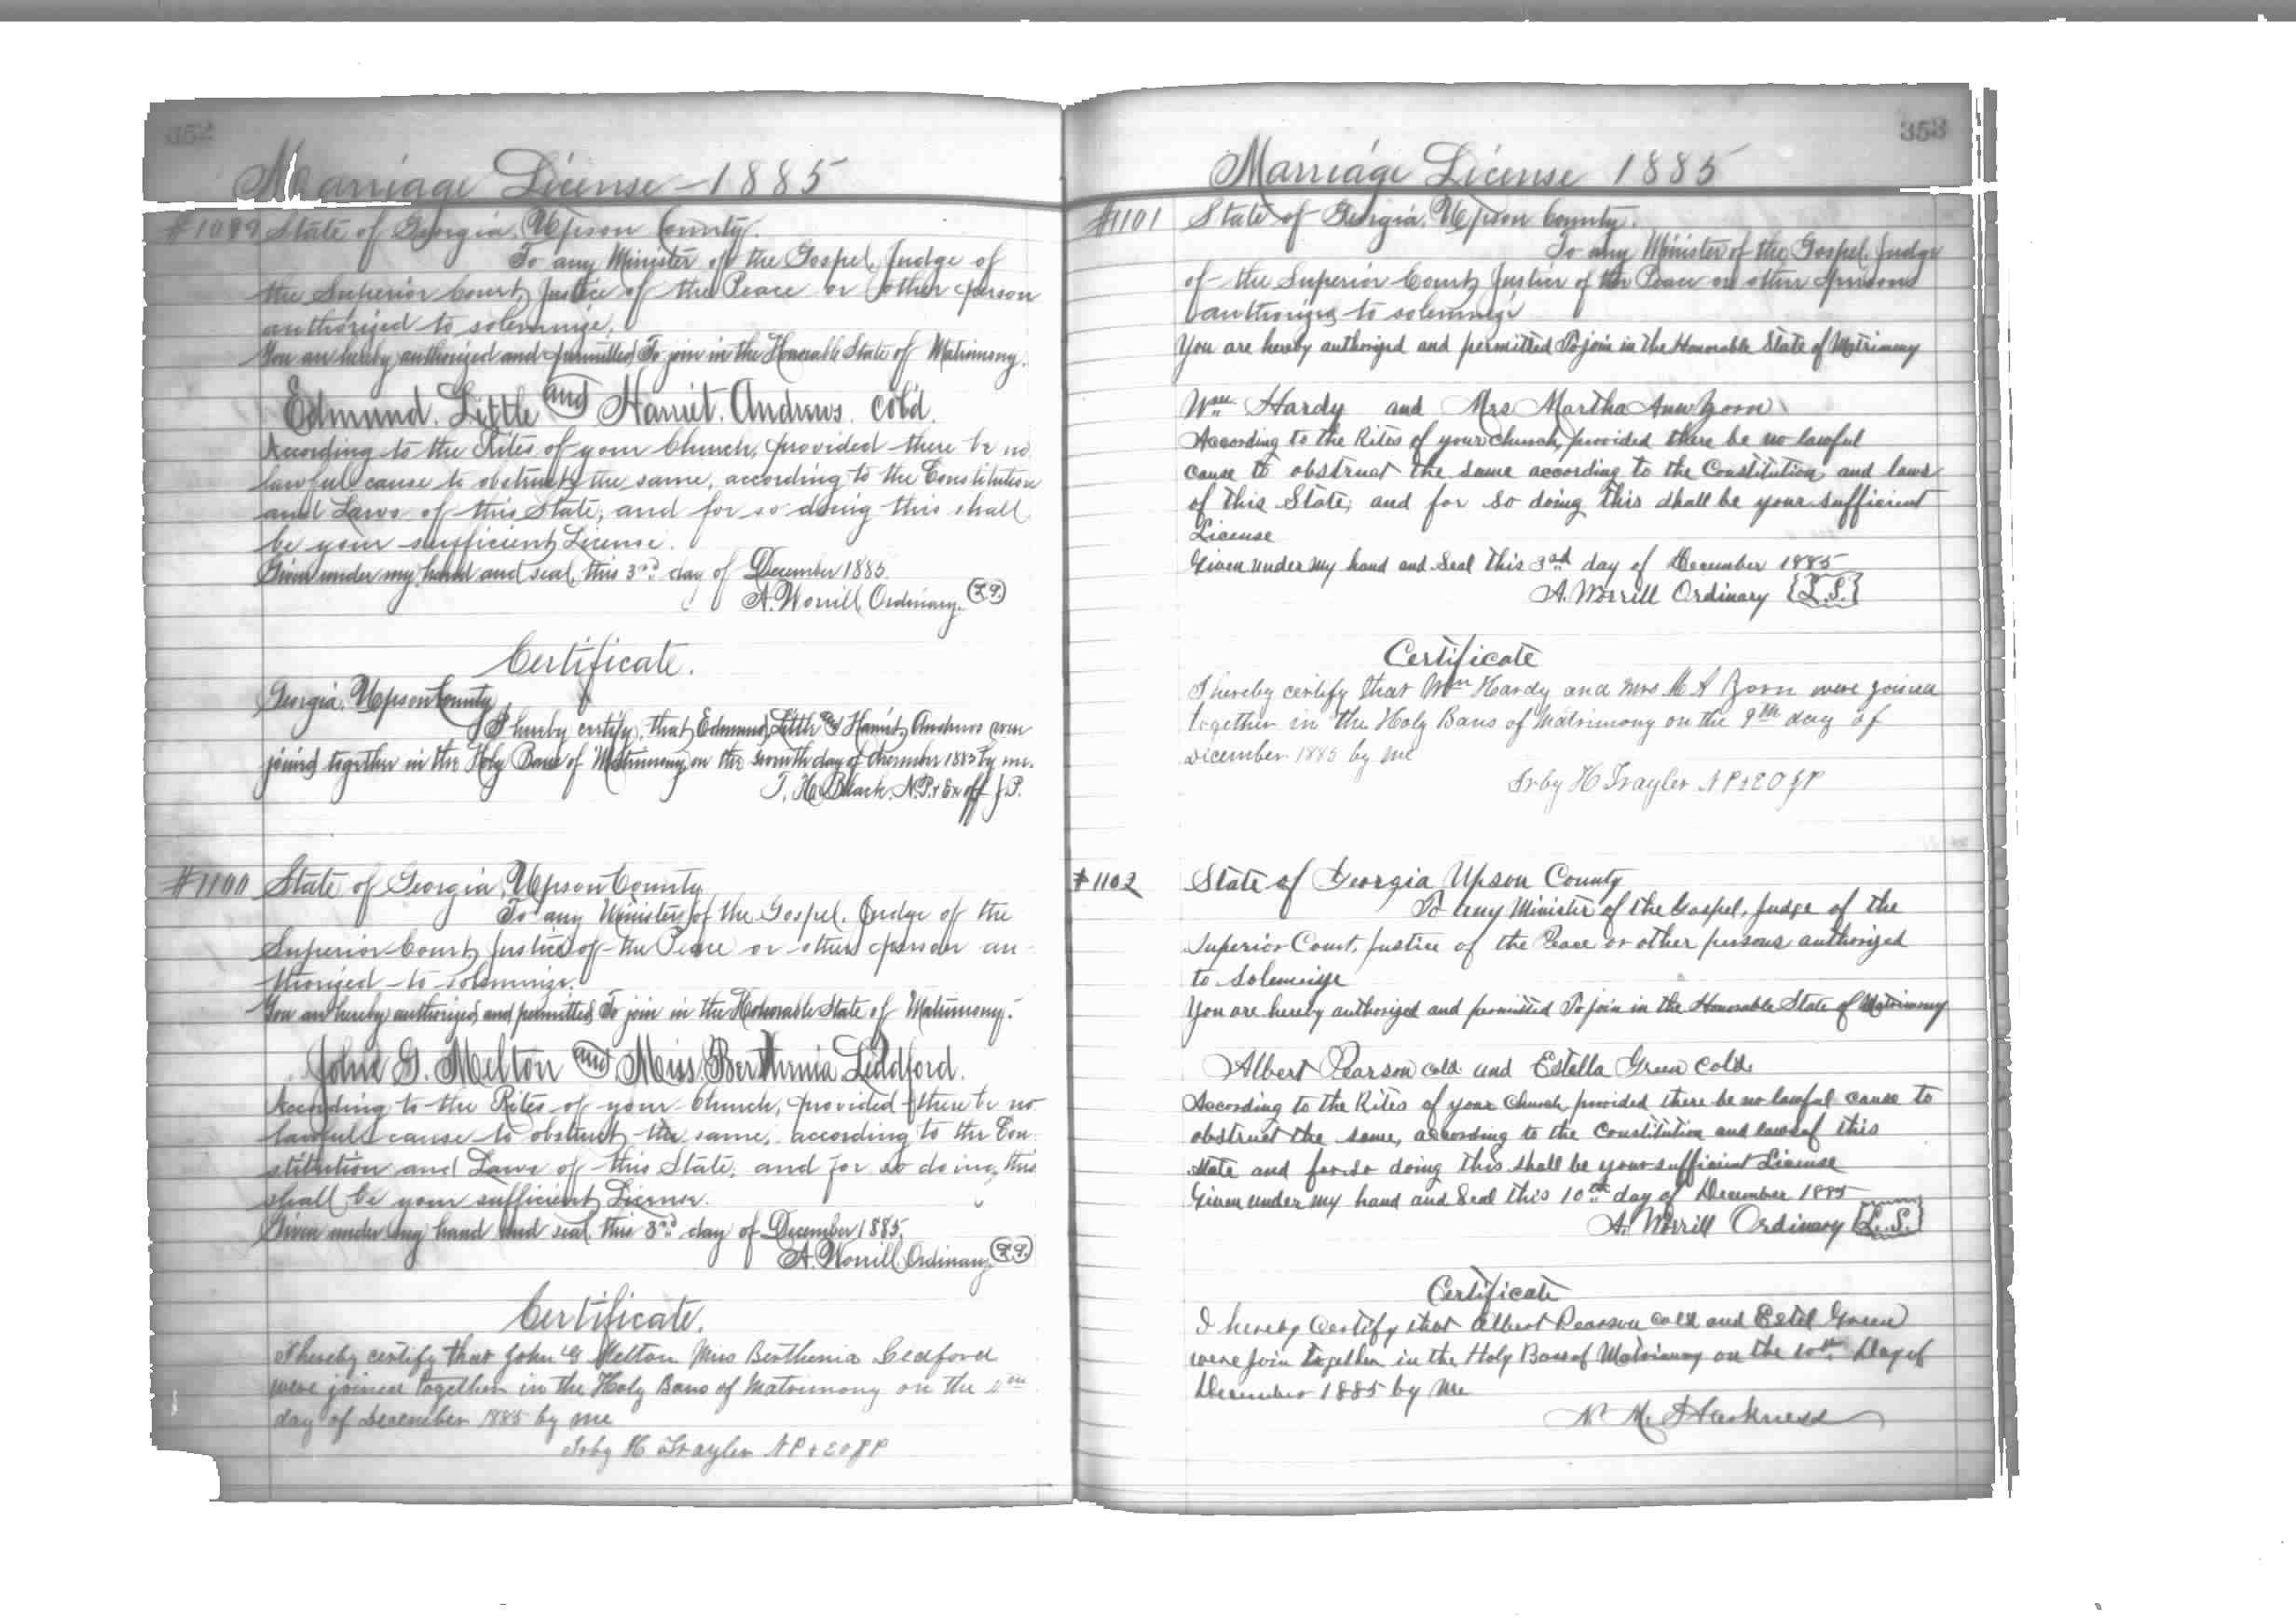 352
Marriage License - 1885
#1099 State of Georgia, Upson County.
To any Minister of the Gospel, Judge of
the Superior Court, Justice of the Peace or other person
authorized to solemnize.
You are hereby authorized and permitted To join in the Honorable State of Matrimony.
Edmund. Little and Harriet. Andrews. col'd.
According to the Rites of your Church, provided there be no
lawful cause to obstruct the same, according to the Constitution
and Laws of this State, and for so doing this shall
be your sufficient License.
Given under my hand and seal, this 3rd day of December 1885.
A. Worrill, Ordinary. L.S.
Certificate.
Georgia, Upson County
I hereby certify, that Edmund Little & Harriet Andrews were
joined together in the Holy Bans of Matrimony on the day of December 1885 by me.
T. H. Black. N.P. & Ex off J.P.
#1100 State of Georgia, Upson County
To any Minister of the Gospel. Judge of the
Superior Court, Justice of the Peace or other person au-
thorized to solemnize.
You are hereby authorized and permitted To join in the Honorable State of Matrimony.
John G. Melton and Miss. Berthenia Leddford.
According to the Rites of your Church, provided there be no
lawful cause to obstruct the same, according to the Con-
stitution and Laws of this State, and for so doing this
shall be your sufficient License.
Given under my hand and seal, this 3rd day of December 1885.
A. Worrill, Ordinary. L.S.
Certificate.
I hereby certify that John G Melton Miss Berthenia Ledford
were joined together in the Holy Bans of Matrimony on the
day of December 1885 by me
Irby H Traylor N P & E O J P
353
Marriage License 1885
#1101 State of Georgia, Upson County.
To any Minister of the Gospel, Judge
of the Superior Court, Justice of the Peace or other persons
authorized to solemnize
You are hereby authorized and permitted To join in the Honorable State of Matrimony
Wm Hardy and Mrs Martha Ann Zorn
According to the Rites of your Church, provided there be no lawful
cause to obstruct the same according to the Constitution and laws
of this State, and for so doing this shall be your sufficient
License
Given under my hand and Seal this 3rd day of December 1885
A. Worrill Ordinary {L.S.}
Certificate
I hereby certify that Wm Hardy and Mrs M A Zorn were joined
together in the Holy Bans of Matrimony on the 9th day of
December 1885 by me
Irby H Traylor N P & E O J P
#1102 State of Georgia Upson County
To any Minister of the Gospel, Judge of the
Superior Court, Justice of the Peace or other persons authorized
to Solemnize
You are hereby authorized and permitted To join in the Honorable State of Matrimony
Albert Pearson cold and Estella Green cold.
According to the Rites of your Church provided there be no lawful cause to
obstruct the same, according to the Constitution and laws of this
State and for so doing this shall be your sufficient License
Given under my hand and Seal this 10th day of December 1885
A. Worrill Ordinary {L.S.}
Certificate
I hereby Certify that Albert Pearson cold and Estel Green
were Join together in the Holy Bans of Matrimony on the 10th Day of
December 1885 by Me
M. Harkness